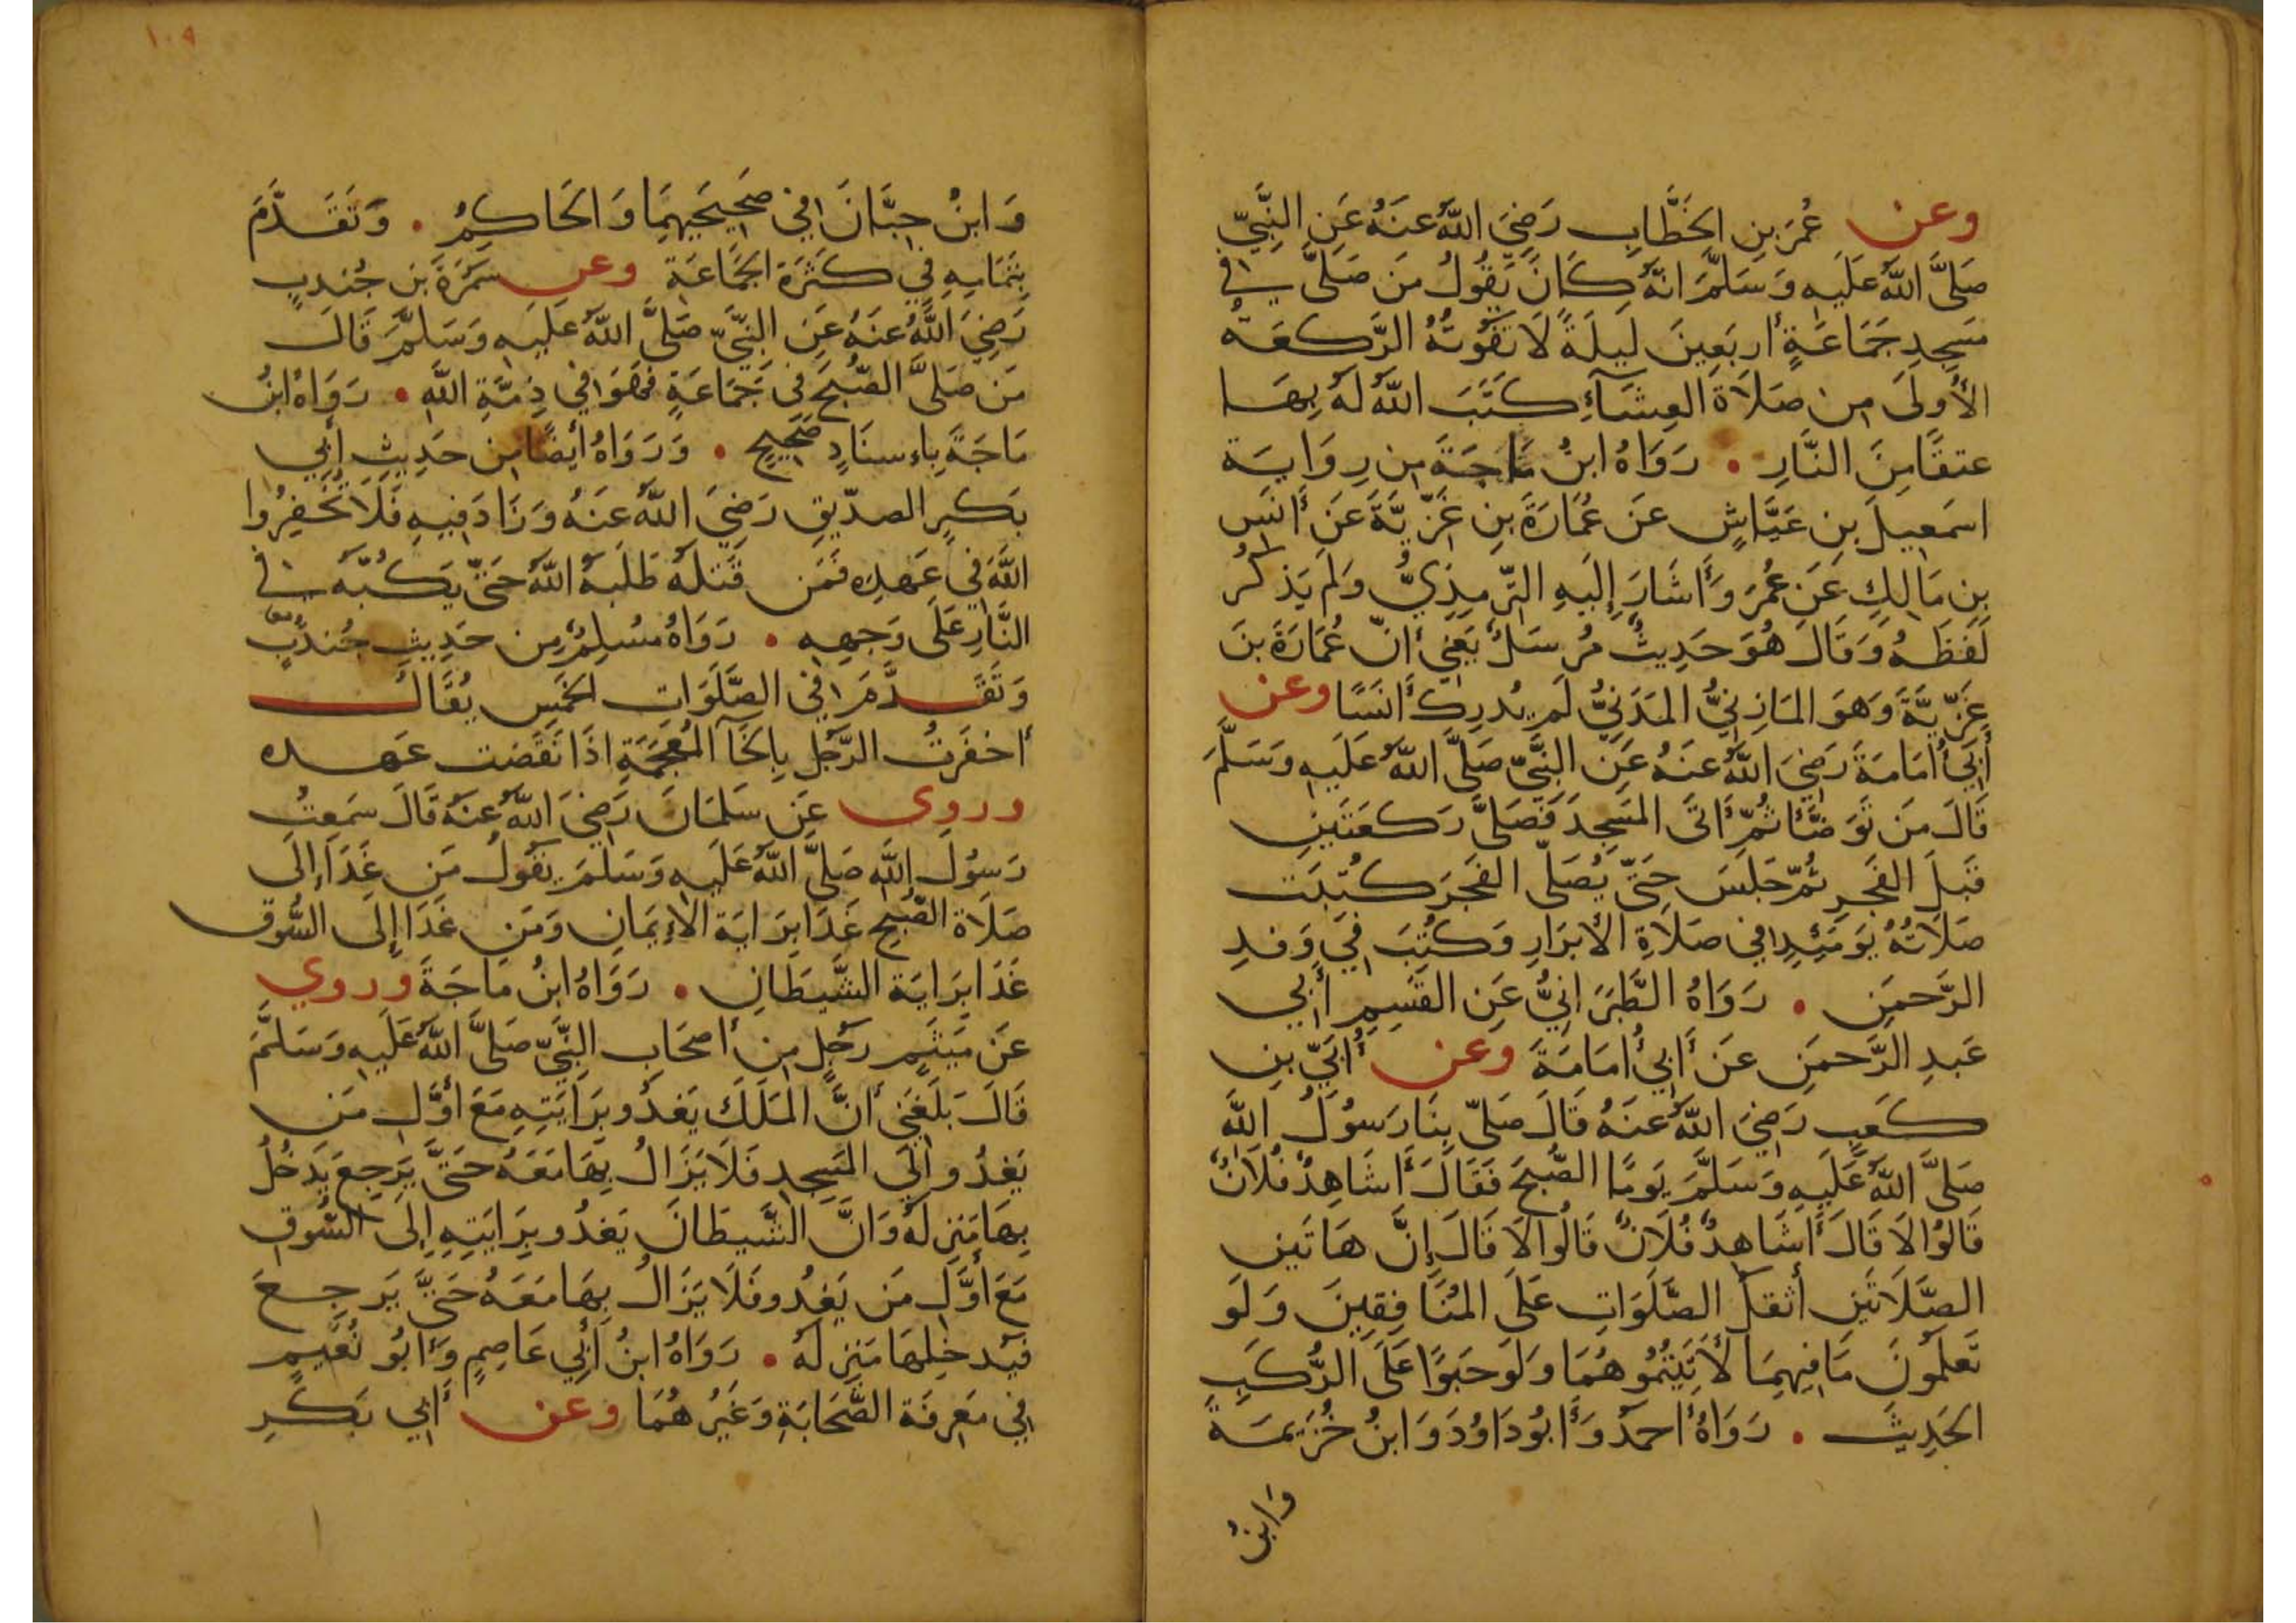 وعن عُمَرَ بنِ الخَطَّابِ رَضِيَ اللّٰهُ عَنهُ عَنِ النَّبِيِّ
صَلَّى اللّٰهُ عَلَيهِ وَسَلَّمَ انَّهُ كَانَ يَقُولُ مَن صَلَّى فِي
مَسجِدِ جَمَاعَةٍ أربَعِينَ لَيلَةً لَا تَفُوتُهُ الرَّكعَةُ
الأُولَى مِن صَلَاةِ العِشَآءِ كَتَبَ اللّٰهُ لَهُ بِهَا
عِتقًا مِنَ النَّارِ • رَوَاهُ ابنُ مَاجَةَ مِن رِوَايَة
اسمَعِيلَ بنِ عَيَّاشٍ عَن عُمَارَةَ بنِ غَزِيَّةَ عَن أَنَسِ
بنِ مَالِكٍ عَن عُمَرَ وَأَشَارَ إِلَيهِ التِّرمِذِيُّ وَلَم يَذكُر
لَفظَهُ وَقَالَ هُوَ حَدِيثٌ مُرسَلٌ يَعنِي أَنّ عُمَارَةَ بنَ
غَزِيَّةَ وَهَوَ المَازِنِيُّ المَدَنِيُّ لَم يُدرِك أَنَسًا وعن
أَبِي أُمَامَةَ رَضِيَ اللّٰهُ عَنهُ عَنِ النَّبِيِّ صَلَّى اللّٰهُ عَلَيهِ وَسَلَّمَ
قَالَ مَن تَوَضَّأَ ثُمَّ أَتَى المَسجِدَ فَصَلَّى رَكعَتَينِ
قَبلَ الفَجرِ ثُمّ جَلَسَ حَتَّى يُصَلّى الفَجرَ كُتِبَت
صَلَاتُهُ يَومَئِذٍ فِي صَلَاةِ الأَبرَارِ وَكُتِبَ فِي وَفدِ
الرَّحمَنِ • رَوَاهُ الطَّبَرَانِيُّ عَنِ القَسِمِ أَبِي
عَبدِ الرَّحمَنِ عَن أَبِي أُمَامَةَ وعن أُبَيِّ بنِ
كَعبٍ رَضِيَ اللّٰهُ عَنهُ قَالَ صَلّى بِنَا رَسُولُ اللّٰهِ
صَلَّى اللّٰهُ عَلَيهِ وَسَلَّمَ يَومًا الصُّبحَ فَقَالَ أَشَاهِدٌ فُلَانٌ
قَالُوا لَا قَالَ أَشَاهِدٌ فُلَانٌ قَالُوا لَا قَالَ إِنَّ هَاتَينِ
الصَّلَاتَينِ أثقَلُ الصَّلَوَاتِ عَلَى المُنَافِقِينَ وَلَو
تَعلَمُونَ مَا فِيهِمَا لَأَتَيتُمُوهُمَا وَلَو حَبوًا عَلَى الرُّكَبِ
الحَدِيثَ • رَوَاهُ أَحمَدُ وَأَبُو دَاوُدَ وَابنُ خُزَيمَةَ
وَابنُ
١٠٩
وَابنُ حِبَّانَ فِي صَحِيحَيهِمَا وَالحَاكِمُ • وَتَقَدَّمَ
بِتَمَامِهِ فِي كَثرَةِ الجَمَاعَةِ وعن سَمُرَةَ بنِ جُندِبٍ
رَضِيَ اللّٰهُ عَنهُ عَنِ النَّبِيِّ صَلَّى اللّٰهُ عَلَيهِ وَسَلَّمَ قَالَ
مَن صَلَّى الصُّبحَ فِي جَمَاعَةٍ فَهُوَ فِي ذِمَّةِ اللّٰهِ • رَوَاهُ ابنُ
مَاجَةَ بِاِسنَادٍ صَحِيحٍ • وَرَوَاهُ أَيضًا مِن حَدِيثِ أَبِي
بَكرٍ الصدّيقِ رَضِيَ اللّٰهُ عَنهُ وَزَادَ فِيهِ فَلَا تُخفِرُوا
اللّٰهَ فِي عَهدِهِ فَمَن قَتَلَهُ طَلَبَهُ اللّٰهُ حَتّى يَكُبَّهُ فِي
النَّارِ عَلَى وَجهِهِ • رَوَاهُ مُسلِمٌ مِن حَدِيثِ جُندُبٍ
وَتَقَدَّمَ فِي الصَّلَوَاتِ الخَمسِ يُقَالُ
أَخفَرتُ الرَّجُلَ بِالخَآ المُعجَمَةِ اذَا نَقَضت عَهده
وروى عَن سَلمَانَ رَضِيَ اللّٰهُ عَنهُ قَالَ سَمِعتُ
رَسُولَ اللّٰهِ صَلَّى اللّٰهُ عَلَيهِ وَسَلَّمَ يَقُولُ مَن غَدَا إِلَى
صَلَاةِ الصُّبحِ غَدَا بِرَايَةِ الاِيمَانِ وَمَن غَدَا إِلَى السُّوقِ
غَدَا بِرَايَة الشَّيطَانِ • رَوَاهُ ابنُ مَاجَةَ وروي
عَن مَيثَمٍ رَجُلٍ مِن أَصحَابِ النَّبِيّ صَلَّى اللّٰهُ عَلَيهِ وَسَلَّمَ
قَالَ بَلَغَنِي أَنَّ المَلَكَ يَغدُو بِرَايَتِهِ مَعَ أَوَّلِ مَن
يَغدُو إِلَى المَسجِدِ فَلَا يَزَالُ بِهَا مَعَهُ حَتَّى يَرجِعَ يَدخُلُ
بِهَا مَنزِلَهُ وَانَّ الشَّيطَانَ يَغدُو بِرَايَتِهِ إِلَى السُّوقِ
مَعَ أَوَّلِ مَن يَغدُو فَلَا يَزَالُ بِهَا مَعَهُ حَتَّى يَرجِعَ
فَيدخِلهَا مَنزِلَهُ • رَوَاهُ ابنُ أَبِي عَاصِمٍ وَأَبُو نُعَيمٍ
فِي مَعرِفَة الصَّحَابَةِ وَغَيرُهُمَا وعن أَبِي بَكرِ